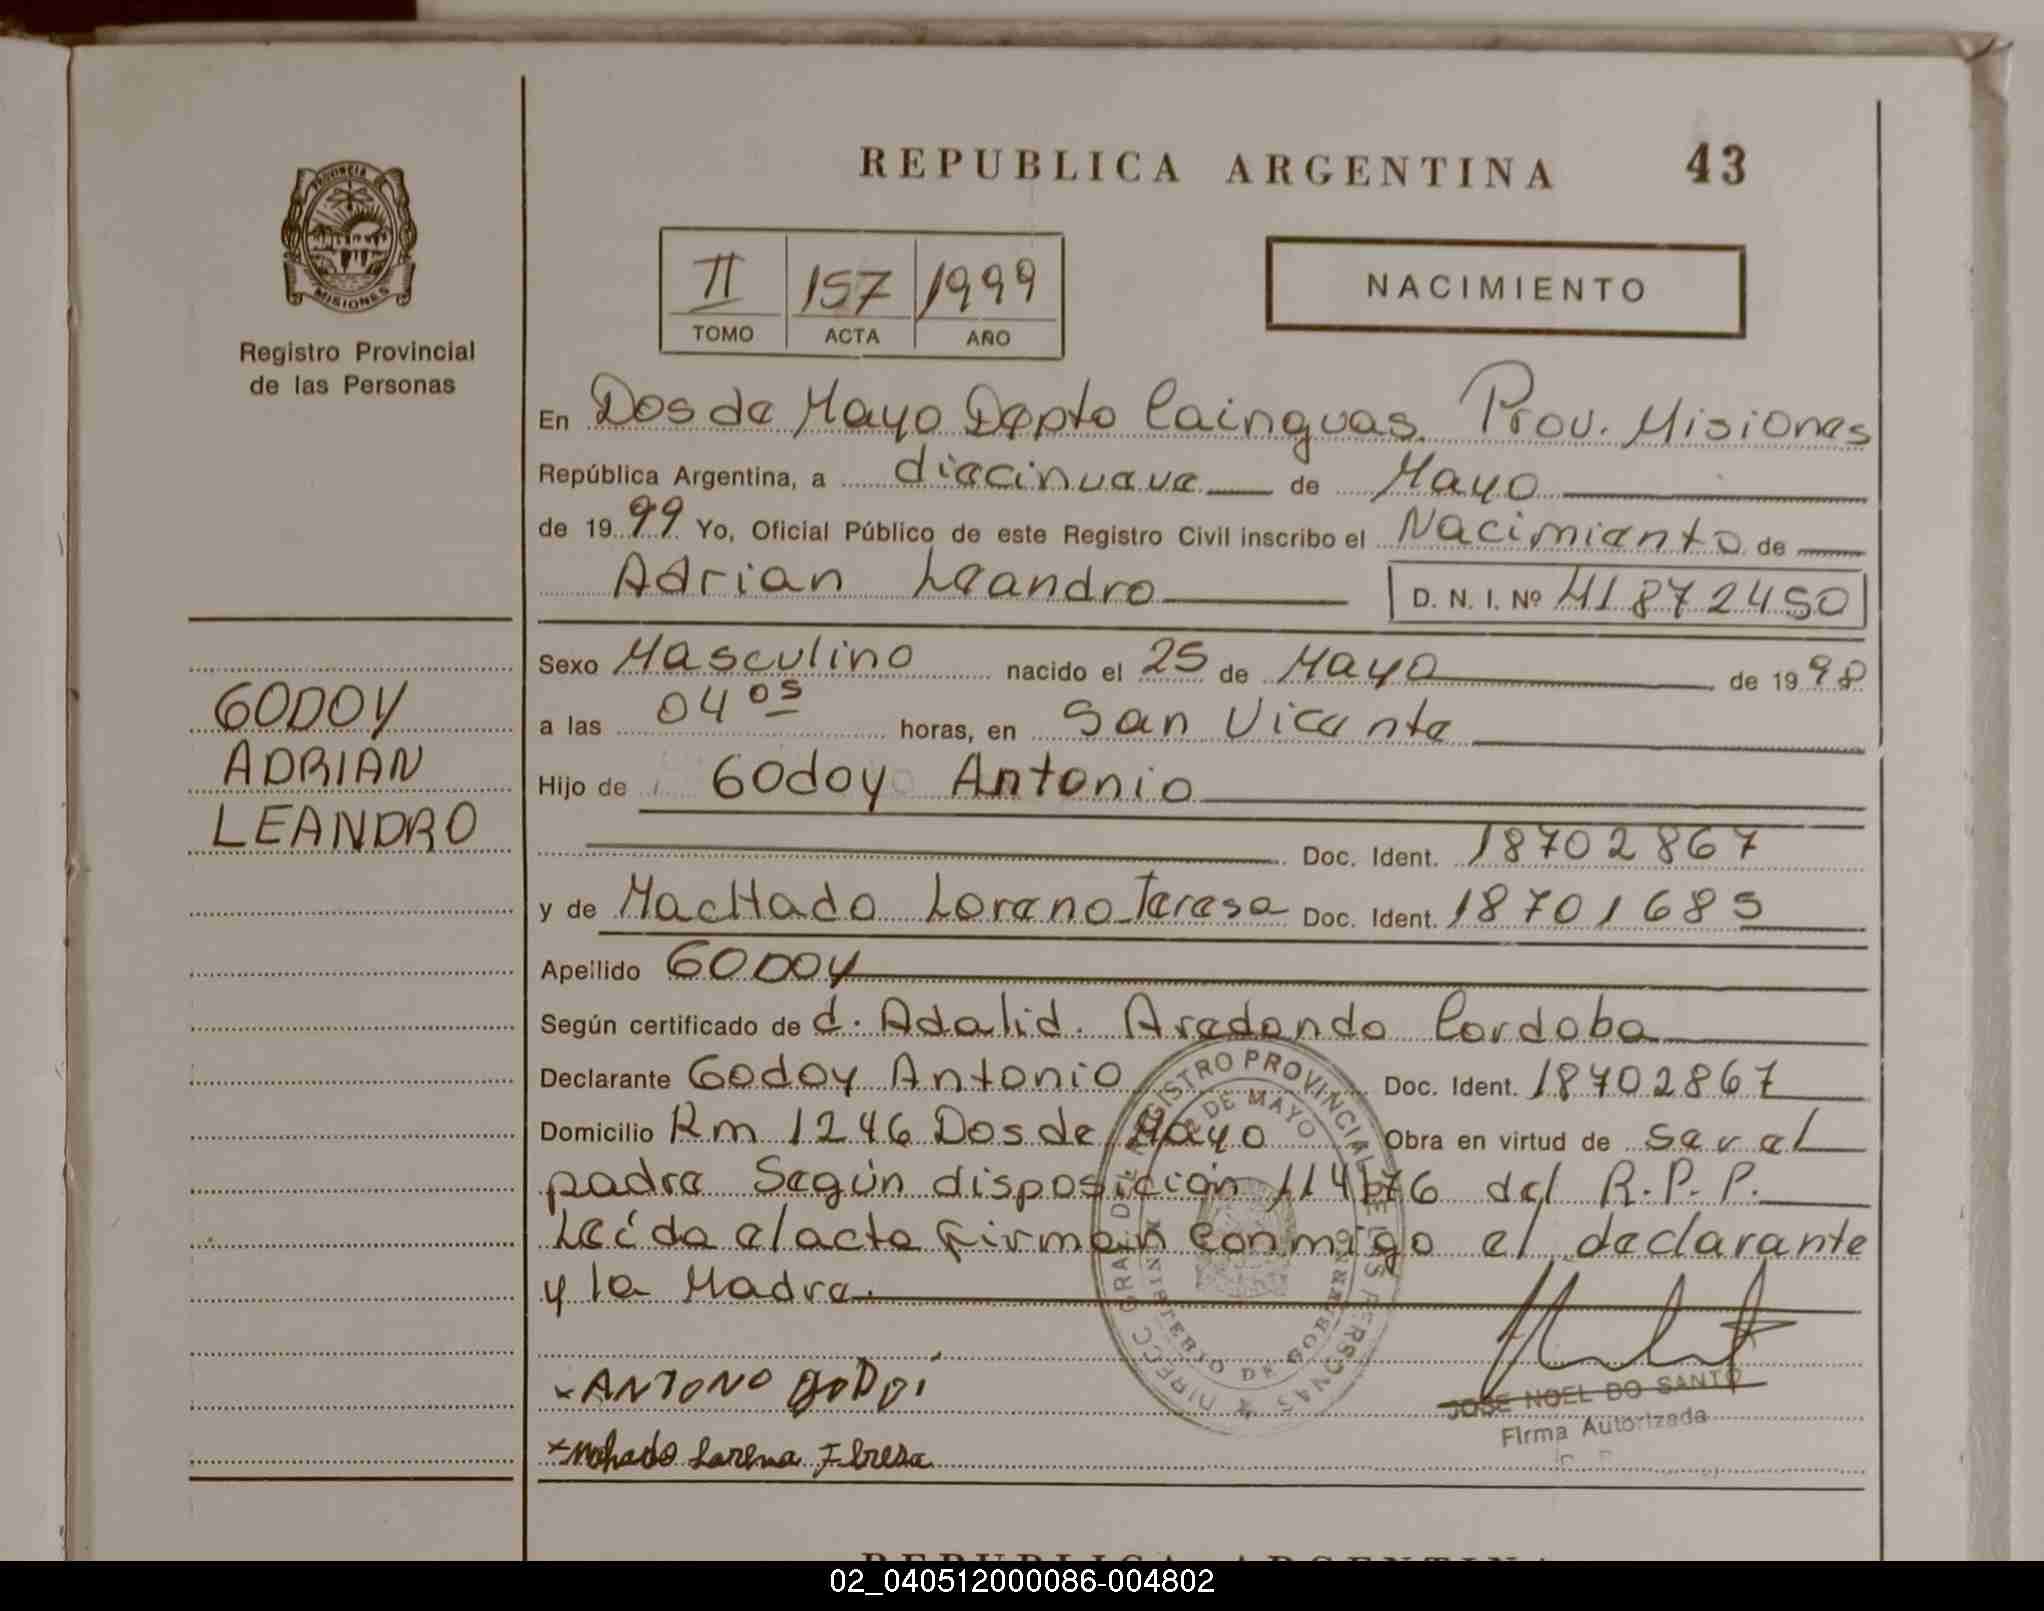 REPUBLICA ARGENTINA 43
PROVINCIA DE
MISIONES
Registro Provincial
de las Personas
II 157 1999
TOMO ACTA AÑO
NACIMIENTO
En Dos de Mayo Depto Cainguas Prov. Misiones
República Argentina, a diecinueve de Mayo
de 1999 Yo, Oficial Público de este Registro Civil inscribo el Nacimiento de
Adrian Leandro D. N. I. Nº 41872450
Sexo Masculino nacido el 25 de Mayo de 1998
GODOY
a las 04 05 horas, en San Vicente
ADRIAN
Hijo de Godoy Antonio
LEANDRO
Doc. Ident. 18702867
y de Machado Loreno Teresa Doc. Ident. 18701685
Apellido GODOY
Según certificado de d. Adalid. Aredondo Cordoba
Declarante Godoy Antonio Doc. Ident. 18702867
Domicilio Rm 1246 Dos de Mayo Obra en virtud de ser el
padre Según disposición 114/76 del R.P.P.
Leída el acta firman conmigo el declarante
y la Madre.
DIRECC. GRAL. DEL REGISTRO PROVINCIAL DE LAS PERSONAS
2 DE MAYO
MINISTERIO DE GOBIERNO
x ANTONO GODOI
JOSE NOEL DO SANTO
Firma Autorizada
x Mchado Larena Teresa
REPUBLICA ARGENTINA
02_040512000086-004802